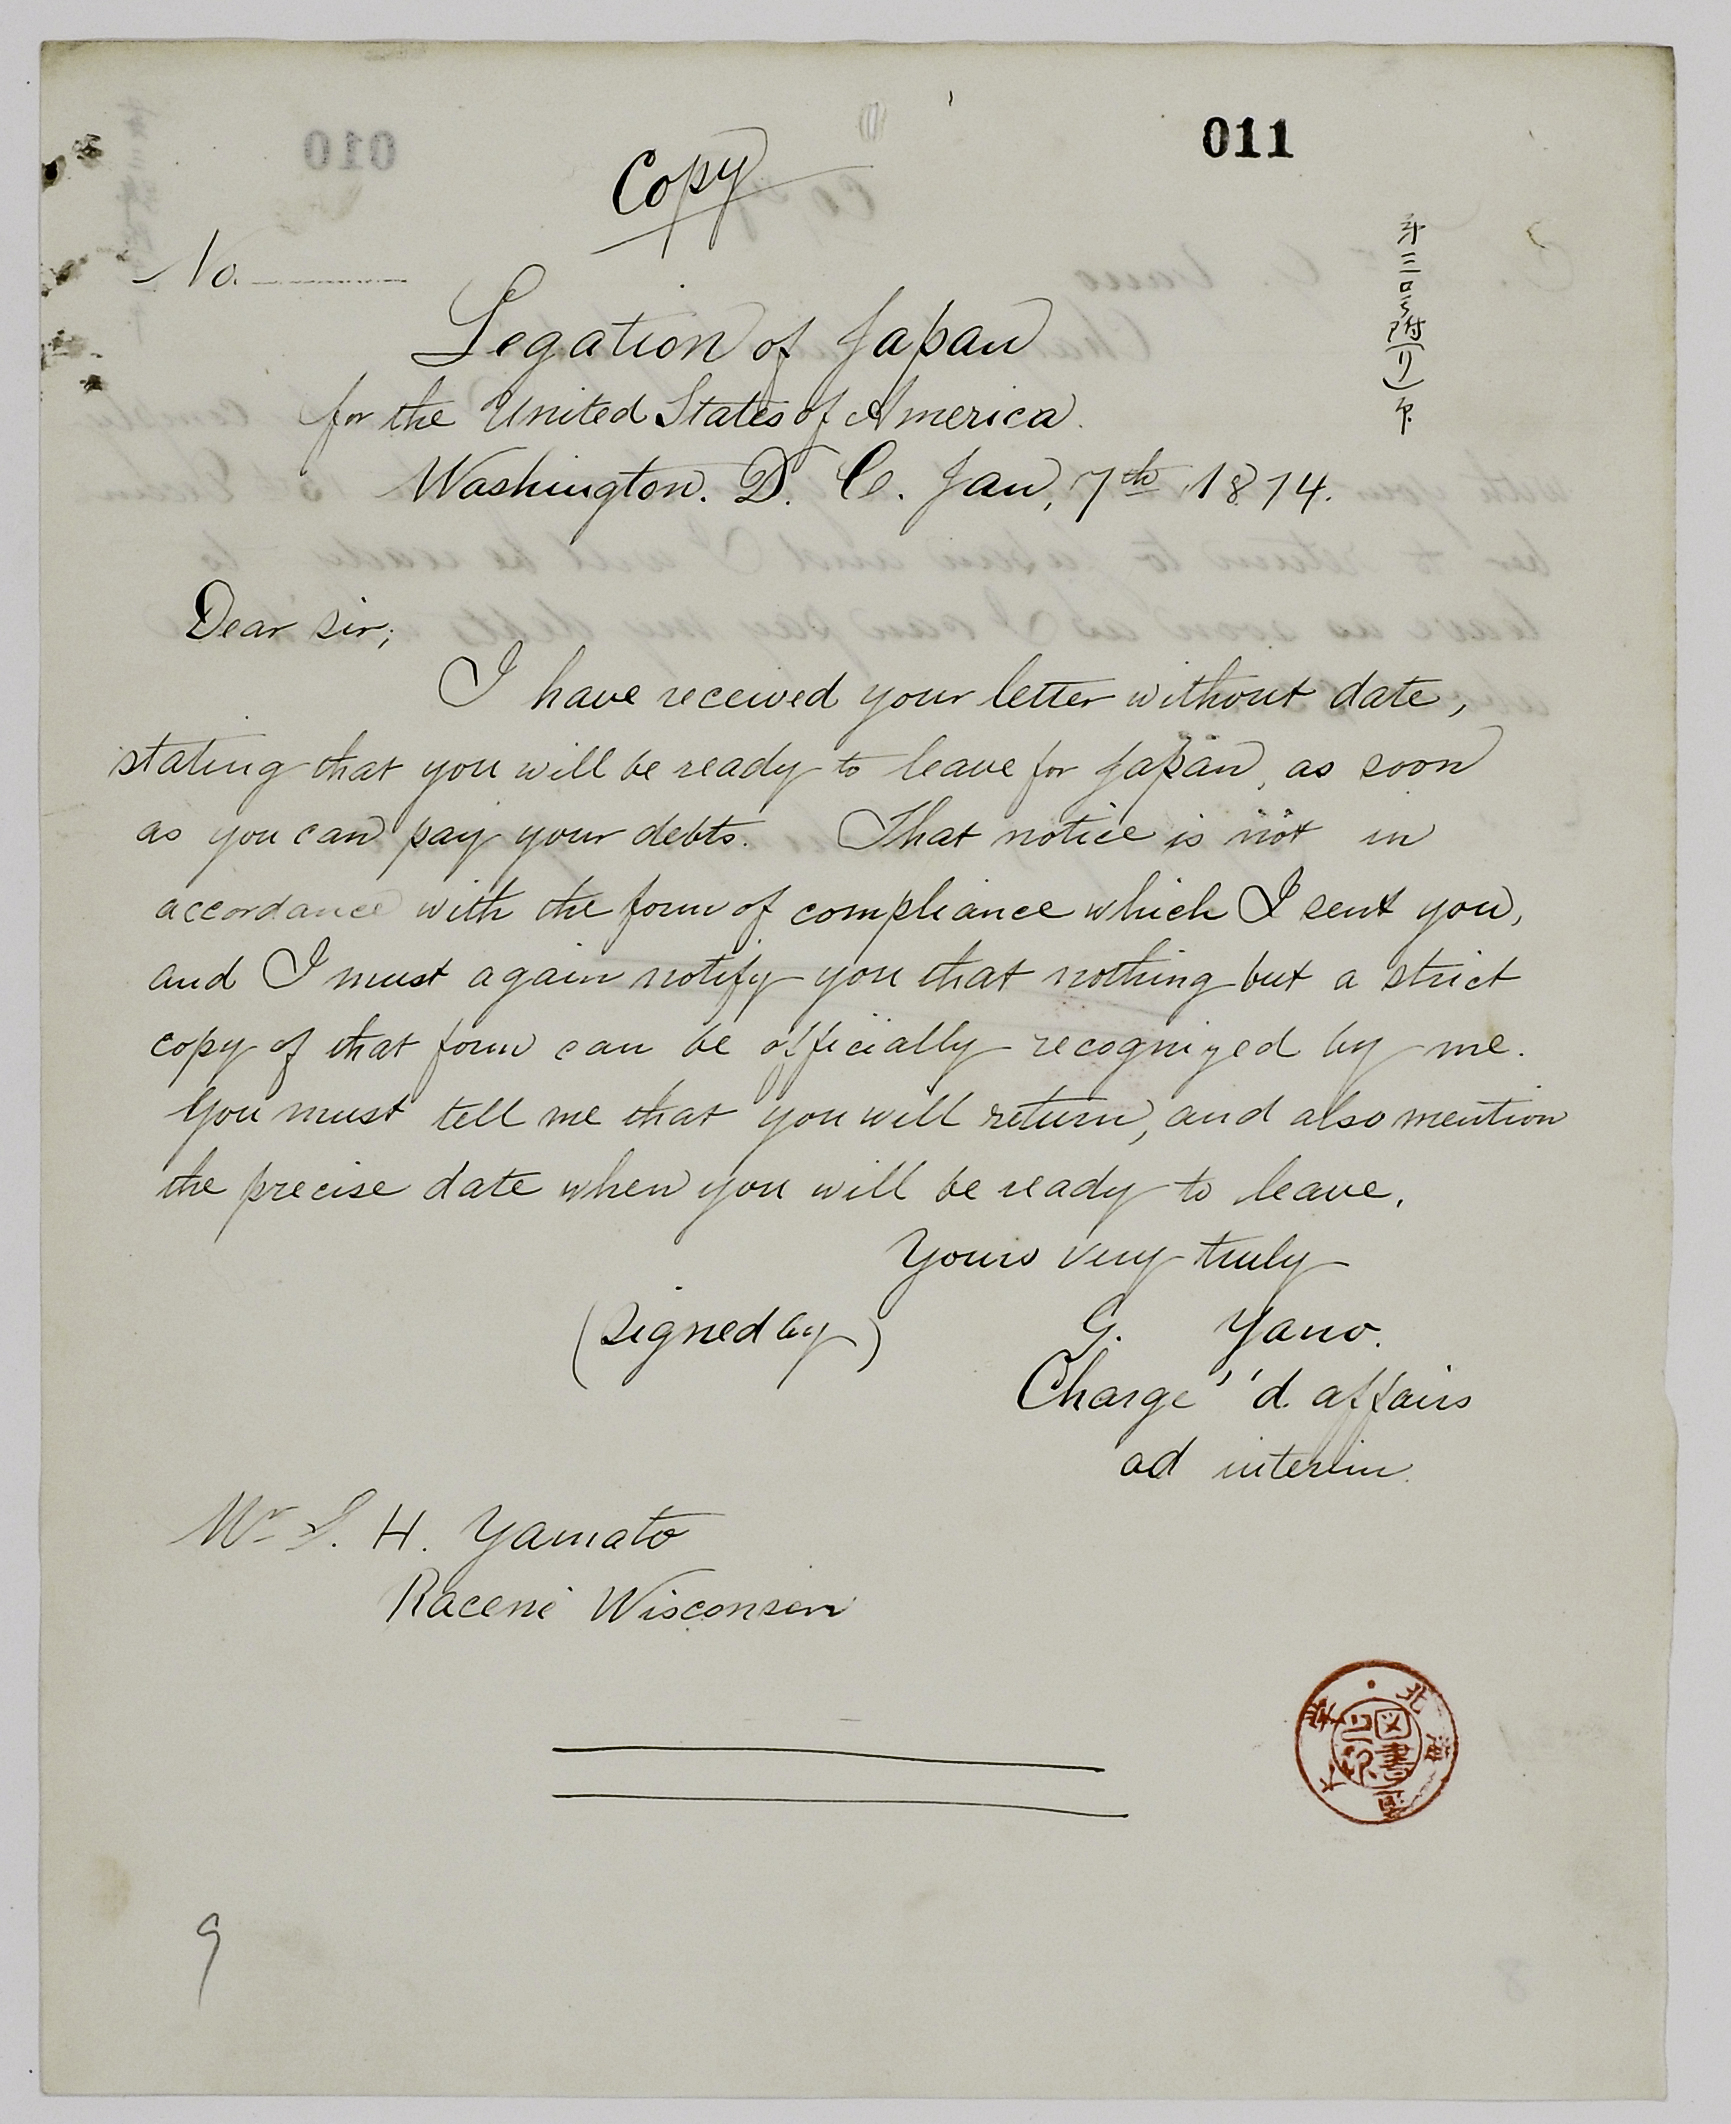 011
Copy
No.
Legation of Japan
for the United States of America.
Washington. D. C. Jan, 7th 1874.
Dear Sir;
I have received your letter without date,
stating that you will be ready to leave for Japan, as soon
as you can pay your debts. That notice is not in
accordance with the form of compliance which I sent you,
and I must again notify you that nothing but a strict
copy of that form can be officially recognized by me.
You must tell me that you will return, and also mention
the precise date when you will be ready to leave.
Yours very truly
(Signed by) G. Yano.
Charge' 'd. affairs
ad interim.
Mr S. H. Yamato
Raceni Wisconsin
図書
9